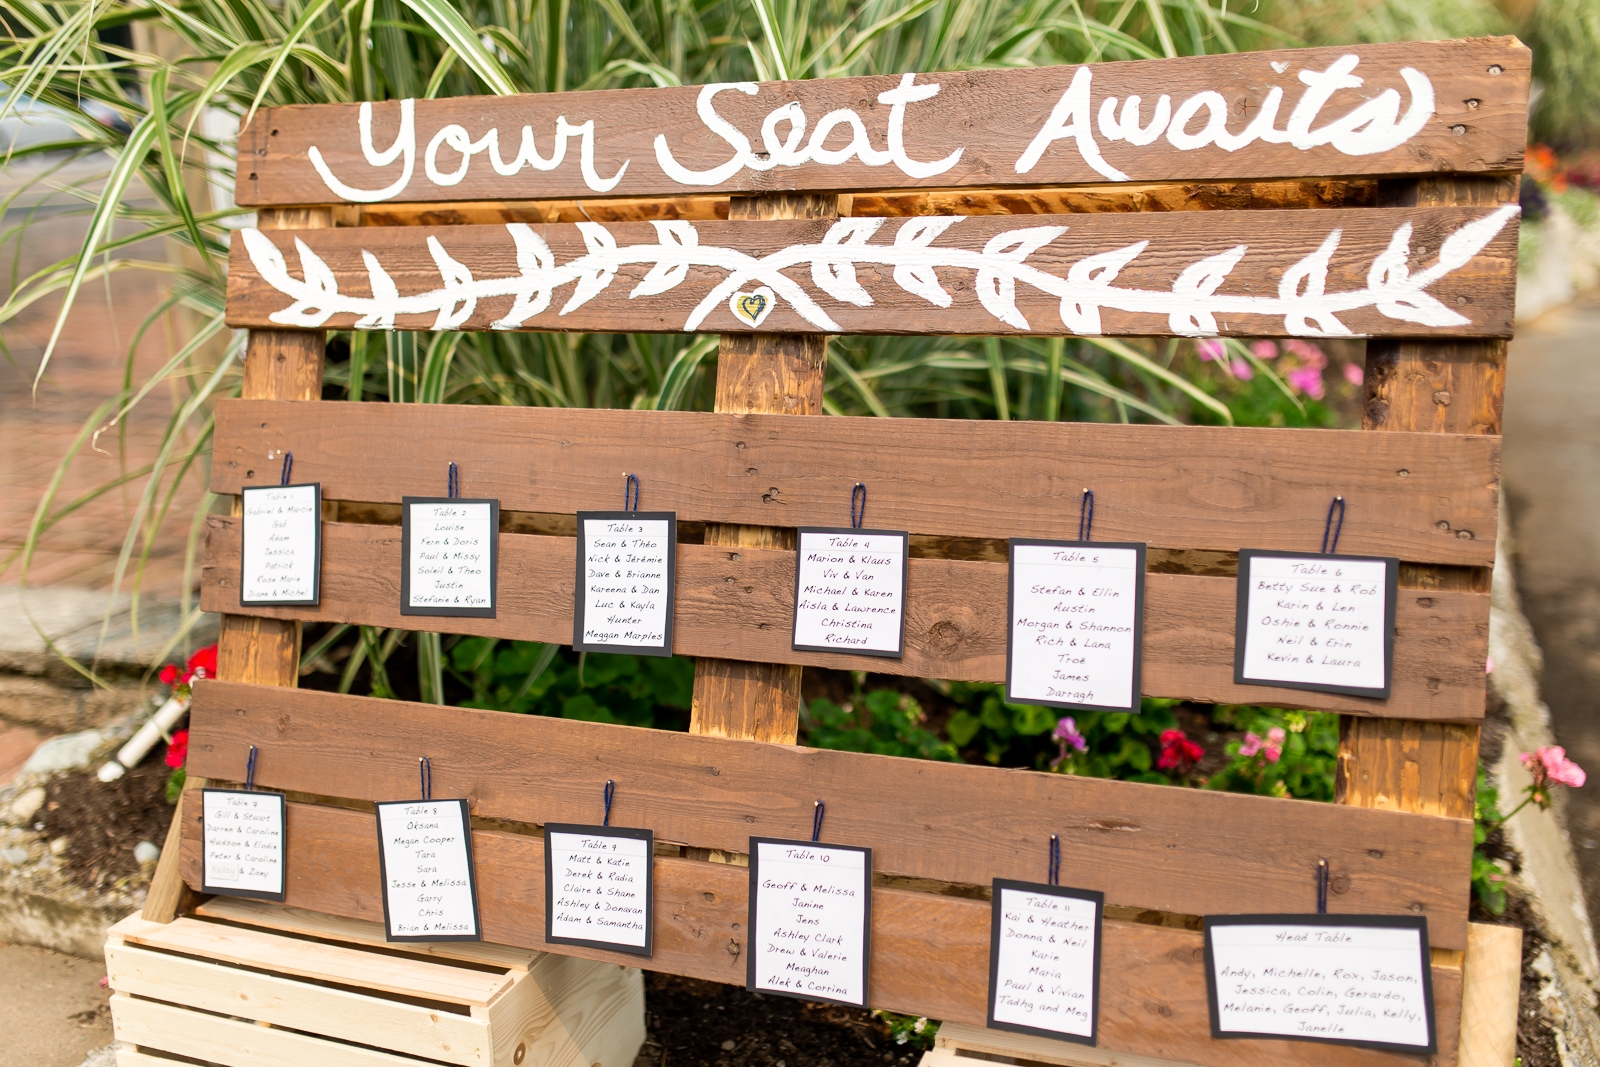 Your Seat Awaits
Table 1
Gabriel & Marcie
Gab
Adam
Jessica
Patrick
Rose Marie
Diane & Michel
Table 2
Louise
Fern & Doris
Paul & Missy
Soleil & Theo
Justin
Stefanie & Ryan
Table 3
Sean & Théo
Nick & Jérémie
Dave & Brianne
Kareena & Dan
Luc & Kayla
Hunter
Meggan Marples
Table 4
Marion & Klaus
Viv & Van
Michael & Karen
Aisla & Lawrence
Christina
Richard
Table 5
Stefan & Ellin
Austin
Morgan & Shannon
Rich & Lana
Troz
James
Darragh
Table 6
Betty Sue & Rob
Karin & Len
Oshie & Ronnie
Neil & Erin
Kevin & Laura
Table 7
Gill & Stuart
Darren & Caroline
Hudson & Elodie
Peter & Caroline
& Zoey
Table 8
Oksana
Megan Cooper
Tara
Sara
Jesse & Melissa
Garry
Chris
Brian & Melissa
Table 9
Matt & Katie
Derek & Radia
Claire & Shane
Ashley & Donavan
Adam & Samantha
Table 10
Geoff & Melissa
Janine
Jens
Ashley Clark
Drew & Valerie
Meaghan
Alek & Corrina
Table 11
Kai & Heather
Donna & Neil
Karie
Maria
Paul & Vivian
Tadhg and Meg
Head Table
Andy, Michelle, Rox, Jason,
Jessica, Colin, Gerardo,
Melanie, Geoff, Julia, Kelly,
Janelle